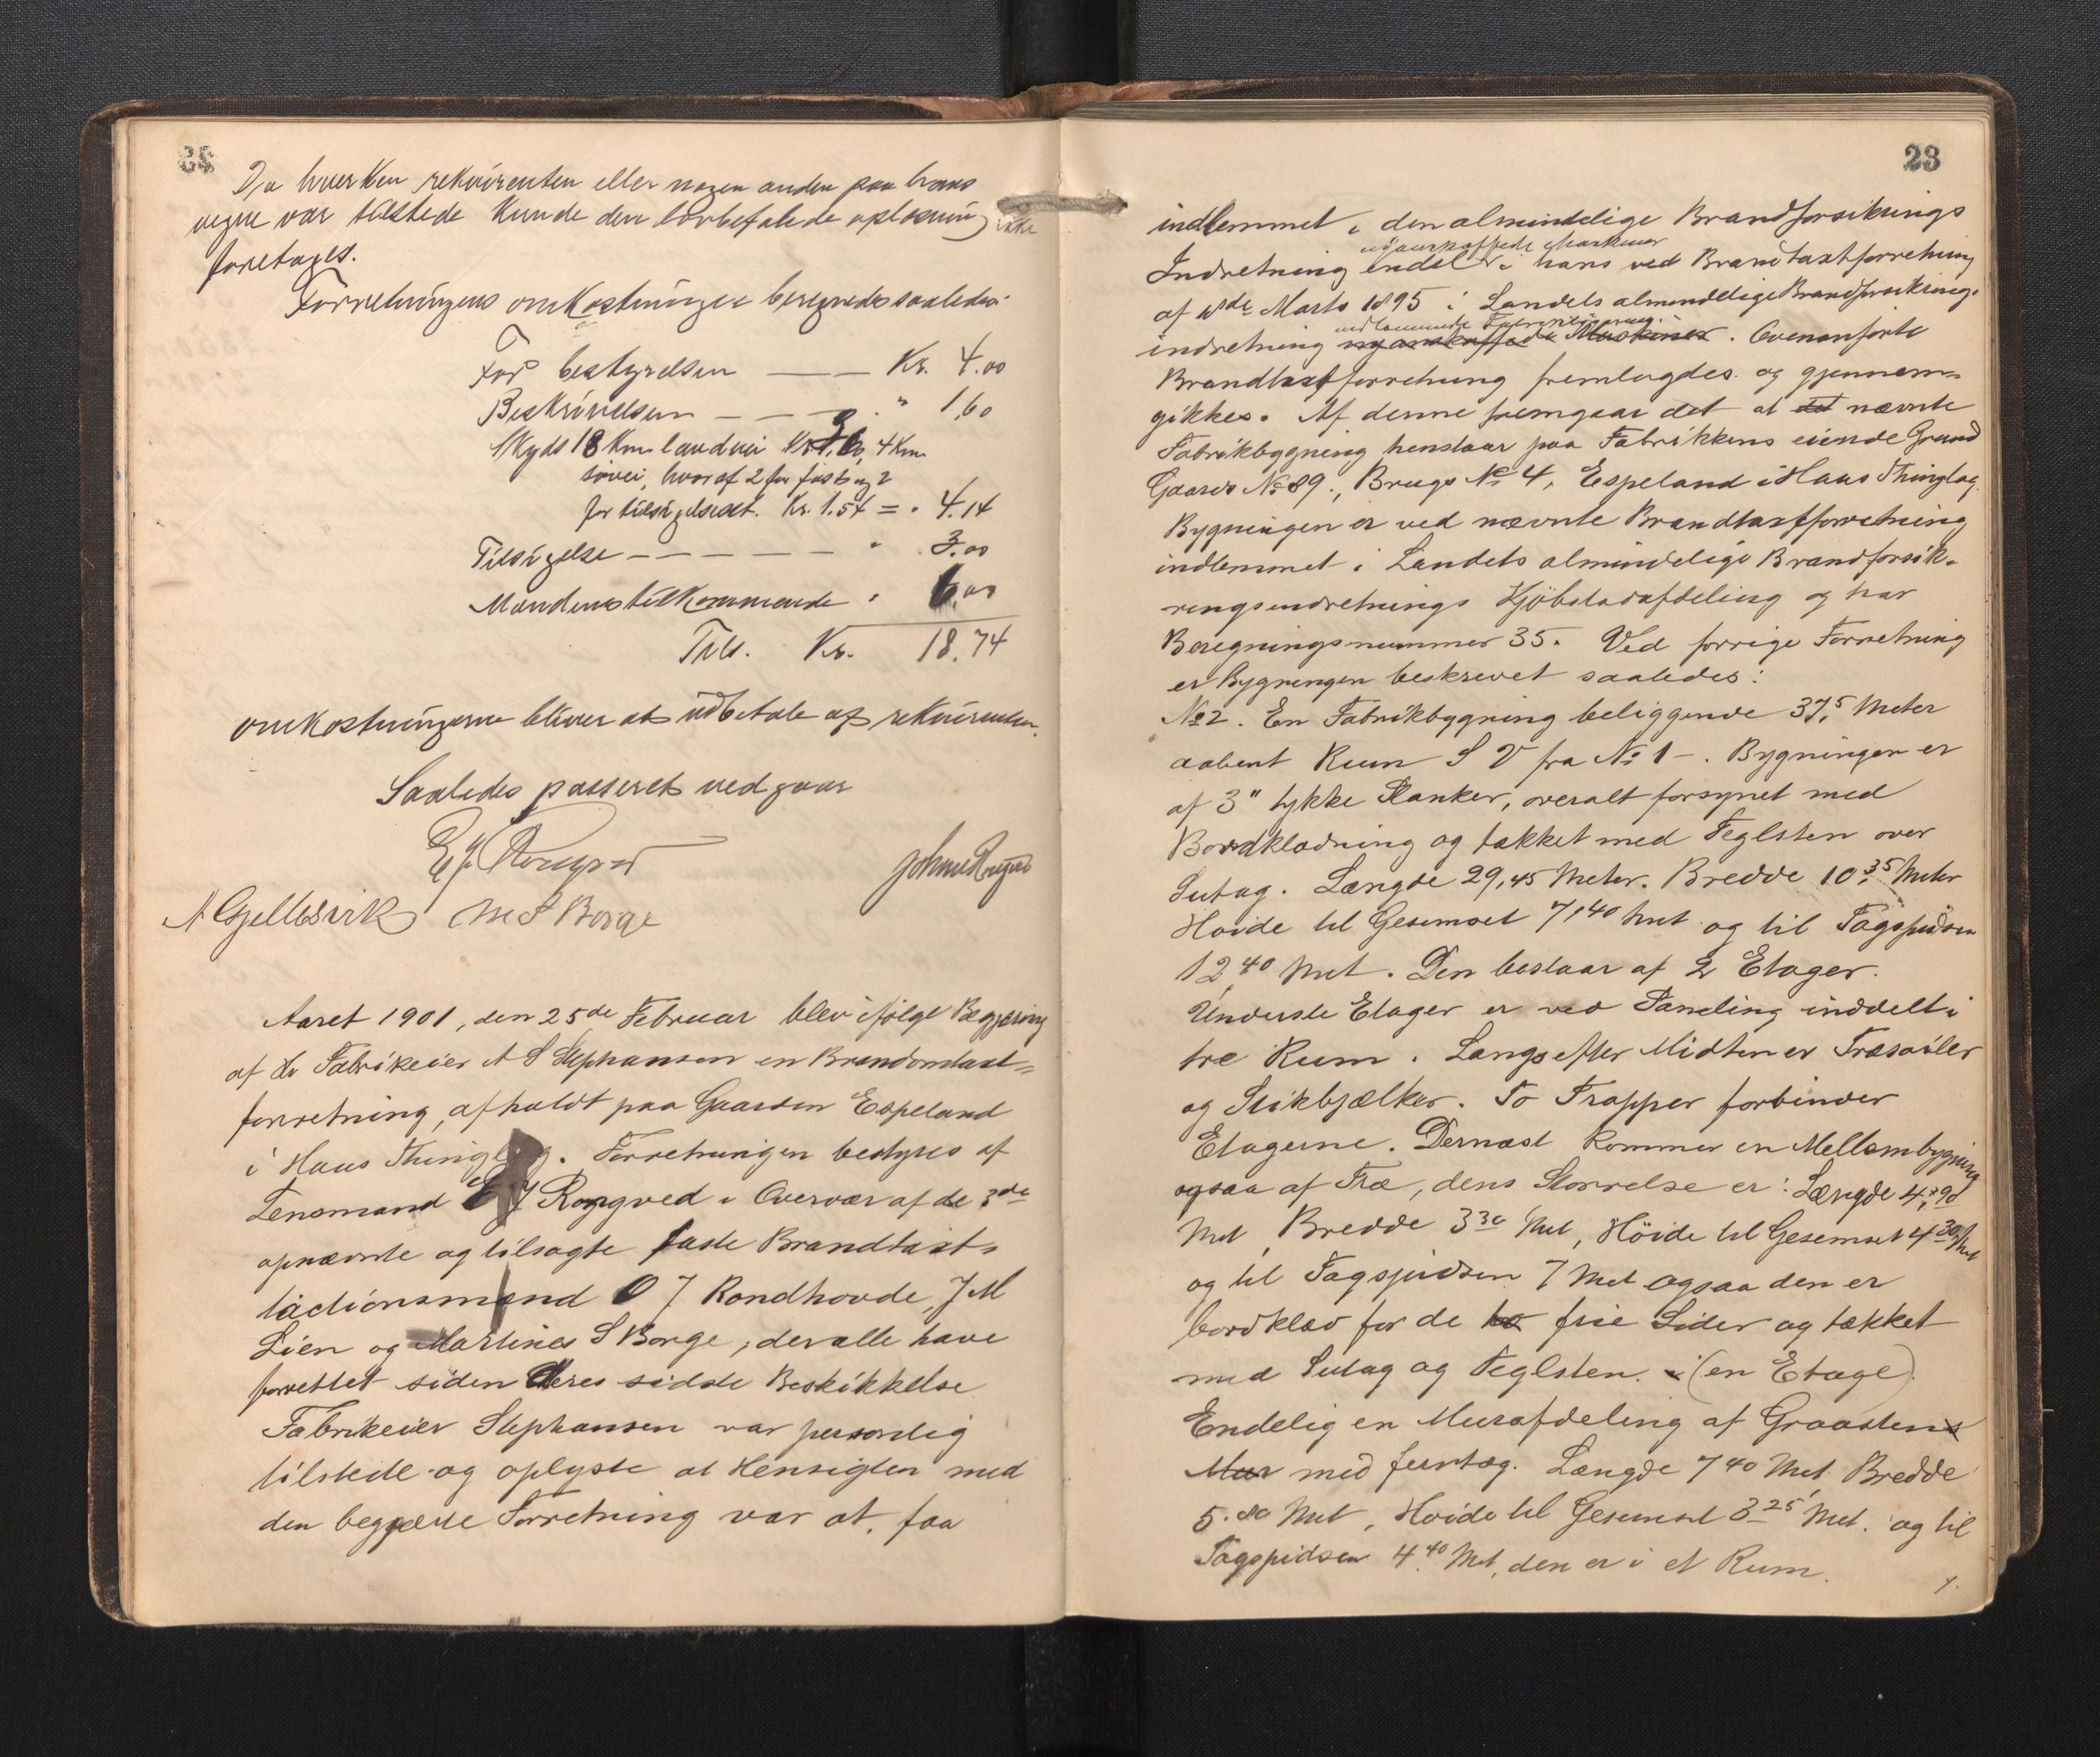 Da hverken rekvirenten eller nogen anden paa hans
vegne var tilstede kunde den lovbefalede oplæsning ikke
foretages.
Forretningens omkostninger beregnedes saaledes:
For bestyrelsen — — Kr. 4.00
Beskrivelsen — — — " 1.60
Skyds 18 Km landvei Kr. 4 Km
søvei, hvoraf 2 for fast og 2
for tilsigelsesst. Kr. 1.54 = " 4.14
Tilsigelse — — — — — " 3.00
Mændenes tilkommende " 6.00
Tils. Kr. 18.74
omkostningerne bliver at udbetale af rekvirenten.
Saaledes passeret vedgaar
A Gjellesvik M S Borge
Aaret 1901, den 25de Februar blev ifølge Begjæring
af Hr Fabrikeier A S Stephansen en Brandomtaxt=
forretning, afholdt paa Gaarden Espeland
i Haus Thinglag. Forretningen bestyres af
Lensmand E J Rongved i Overvær af de 3de
opnævnte og tilsagte faste Brandtaxt=
tactionsmænd O J Rondhovde, J M
Lien og Martines S Borge, der alle have
forrettet siden deres sidste Beskikkelse
Fabrikeier Stephansen var personlig
tilstede og oplyste at Hensigten med
den begjærte Forretning var at, faa
23
indlemmet i den almindelige Brandforsikrings
nyanskaffede Maskiner
Indretning endel i hans ved Brandtaxtforretning
af Marts 1895 i Landets almindelige Brandforsikrings
indlemmede Fabrikbygning.
indretning nyanskaffede Maskiner. Ovenanførte
Brandtaxtforretning fremlagdes og gjennem=
gikkes. Af denne fremgaar det at det nævnte
Fabrikbygning henstaar paa Fabrikkens eiende Grund
Gaards No 89., Brugs No 4, Espeland i Haus Thinglag.
Bygningen er ved nævnte Brandtaxtforretning
indlemmet i Landets almindelige Brandforsik=
ringsindretnings Kjøbstadafdeling og har
Beregningsnummer 35. Ved forrige Forretning
er Bygningen beskrevet saaledes:
No 2. En Fabrikbygning beliggende 37,5 Meter
aabent Rum S V fra No 1 –. Bygningen er
af 3" tykke Planker, overalt forsynet med
Bordklædning og tækket med Teglsten over
Sutag. Længde 29,45 Meter. Bredde 10,35 Meter
Høide til Gesemset 7,40 Met og til Tagspidsen
12,40 Met. Den bestaar af 2 Etager.
Underste Etager er ved Paneling inddelt i
tre Rum. Langs efter Midten er Træsøiler
og Stikbjælker. To Trapper forbinder
Etagerne. Dernæst kommer en Mellembygning
ogsaa af Træ, dens Størrelse er: Længde 4,90
Met, Bredde 3,30 Met, Høide til Gesemset 4,30 Met
og til Tagspidsen 7 Met ogsaa den er
bordklæd for de to frie Sider og tækket
med Sutag og Teglsten. i (en Etage).
Endelig en Murafdeling af Graasten
Mur med Jerntag. Længde 7,40 Met. Bredde
5.80 Met, Høide til Gesemset 3,25 Met. og til
Tagspidsen 4,40 Met, den er i et Rum.